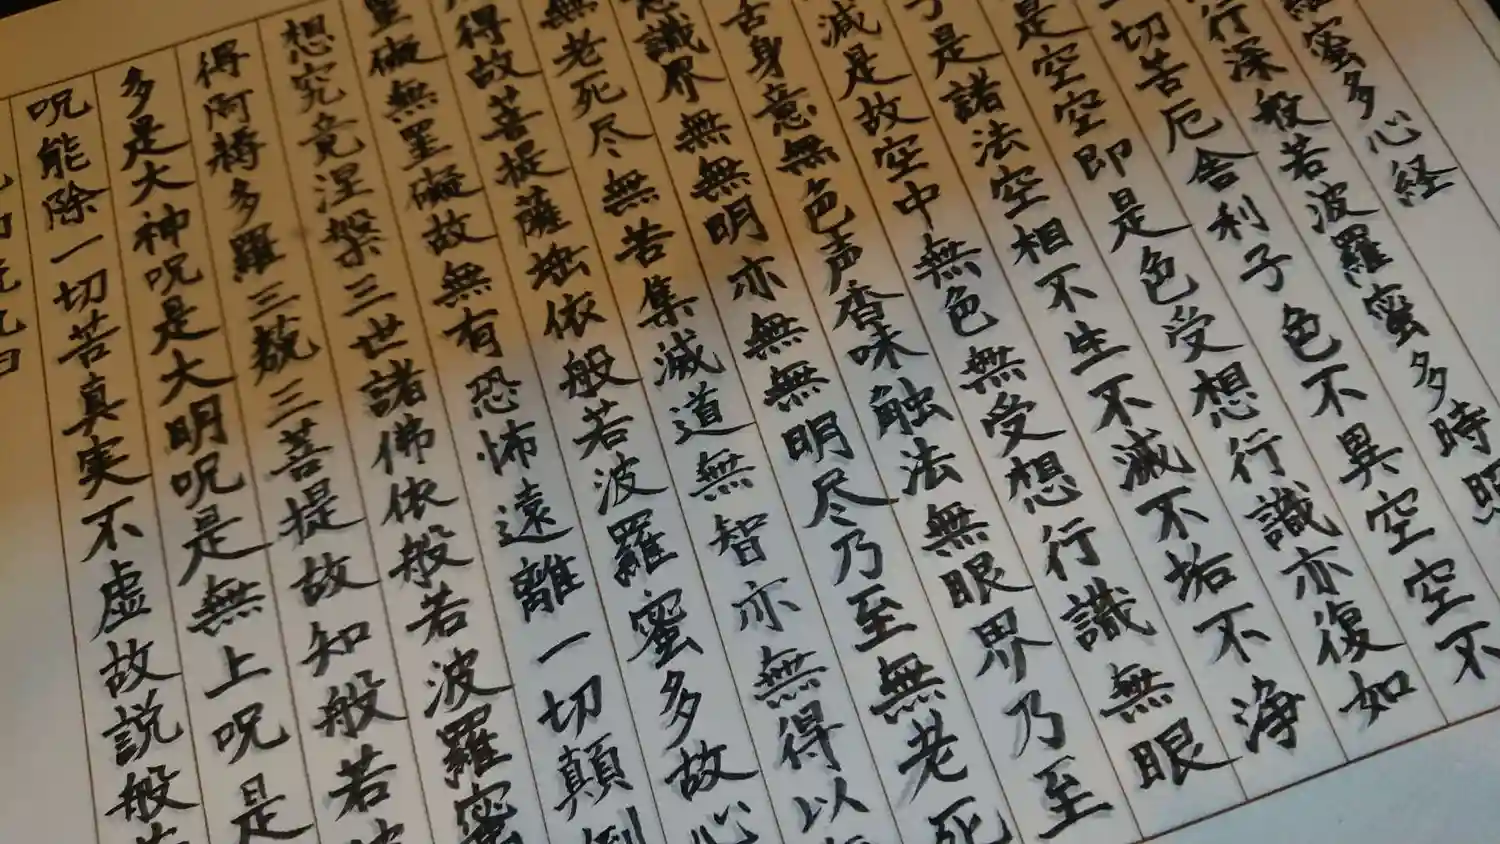 羅蜜多心経
行深般若波羅蜜多時照
一切苦厄舎利子色不異空空不
是空空即是色受想行識亦復如
子是諸法空相不生不滅不垢不浄
減是故空中無色無受想行識無眼
舌身意無色声香味触法無眼界乃至
意識界無無明亦無無明尽乃至無老死
無老死尽無苦集滅道無智亦無得以
得故菩提薩埵依般若波羅蜜多故心
罣礙無罣礙故無有恐怖遠離一切顛倒
想究竟涅槃三世諸佛依般若波羅蜜
得阿耨多羅三藐三菩提故知般若波
多是大神呪是大明呪是無上呪是
呪能除一切苦真実不虚故説般若
説呪曰